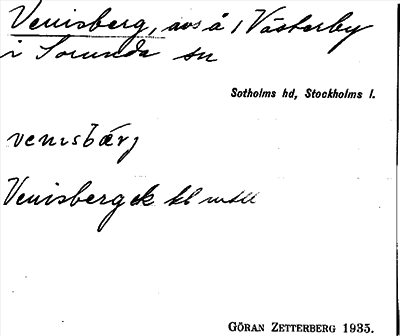 Venisberg, avs å 1 Västerby
i Sorunda sn
Sotholms hd, Stockholms l.
venɩsbærj
Venisberg ek kl
GÖRAN ZETTERBERG 1935.